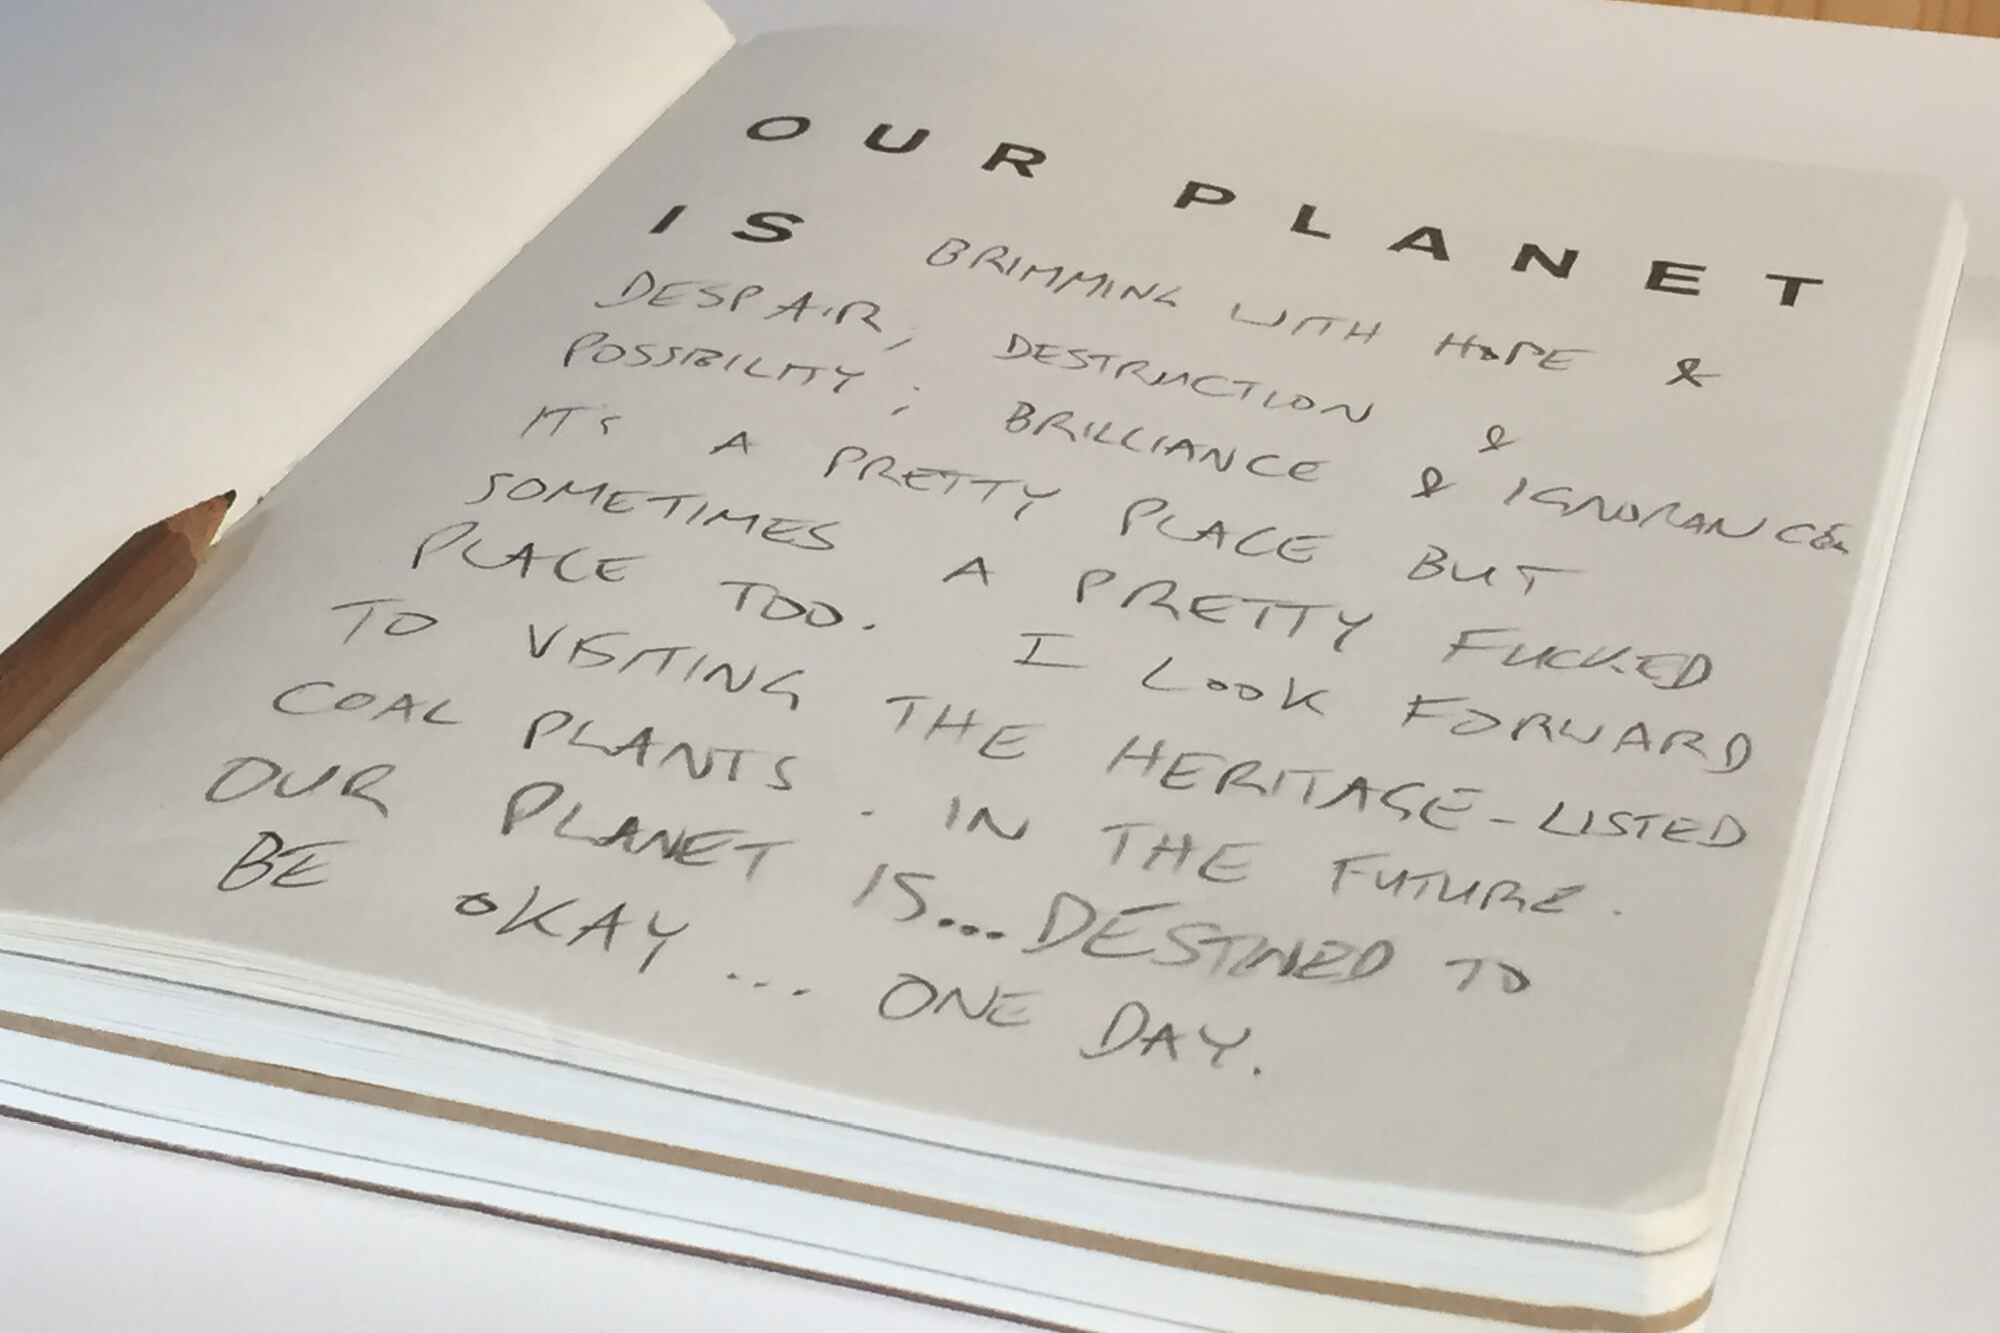 OUR PLANET
IS BRIMMING WITH HOPE &
DESPAIR, DESTRUCTION &
POSSIBILITY; BRILLIANCE & IGNORANCE.
IT'S A PRETTY PLACE BUT
SOMETIMES A PRETTY FUCKED
PLACE TOO. I LOOK FORWARD
TO VISITING THE HERITAGE-LISTED
COAL PLANTS. IN THE FUTURE.
OUR PLANET IS... DESTINED TO
BE OKAY... ONE DAY.